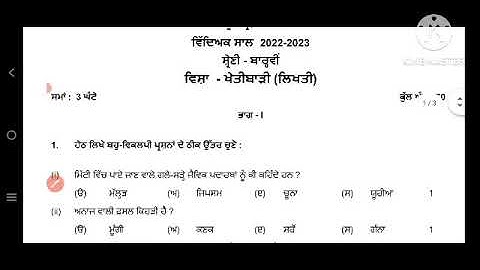 ਵਿੱਦਿਅਕ ਸਾਲ 2022-2023
ਸ਼੍ਰੇਣੀ - ਬਾਰ੍ਹਵੀਂ
ਵਿਸ਼ਾ - ਖੇਤੀਬਾੜੀ (ਲਿਖਤੀ)
ਸਮਾਂ : 3 ਘੰਟੇ ਕੁੱਲ
1/3
ਭਾਗ - I
1. ਹੇਠ ਲਿਖੇ ਬਹੁ-ਵਿਕਲਪੀ ਪ੍ਰਸ਼ਨਾਂ ਦੇ ਠੀਕ ਉੱਤਰ ਚੁਣੋ :
(i) ਮਿੱਟੀ ਵਿੱਚ ਪਾਏ ਜਾਣ ਵਾਲੇ ਗਲੇ-ਸੜ੍ਹੇ ਜੈਵਿਕ ਪਦਾਰਥਾਂ ਨੂੰ ਕੀ ਕਹਿੰਦੇ ਹਨ ?
(ੳ) ਮੱਲ੍ਹੜ (ਅ) ਜਿਪਸਮ (ੲ) ਚੂਨਾ (ਸ) ਯੂਰੀਆ 1
(ii) ਅਨਾਜ ਵਾਲੀ ਫ਼ਸਲ ਕਿਹੜੀ ਹੈ ?
(ੳ) ਮੂੰਗੀ (ਅ) ਕਣਕ (ੲ) ਸਰੋਂ (ਸ) ਗੰਨਾ 1